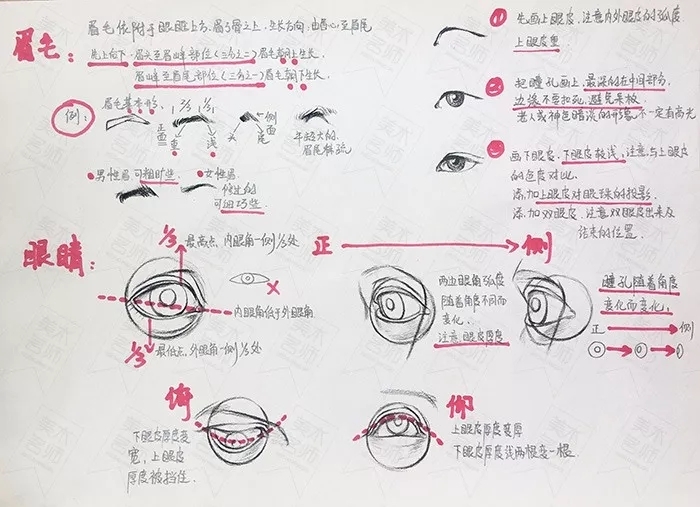 眉毛:
眉毛依附于眼眶上方,眉弓骨之上,生长方向,由眉心至眉尾
先上向下·眉头至眉峰部位(三分之二)眉毛朝上生长,
眉峰至眉尾部位(三分之一)眉毛朝下生长,
例:
眉毛基本形,
1/3 1/3 1/3
正面
重
浅
头
侧面
尾
年纪大的,
眉尾斜弧
男性眉可粗旷些,
女性眉
修过的
可细巧些
① 先画上眼皮,注意内外眼皮的弧度
上眼皮重
② 把瞳孔画上,最深的在中间部分,
边缘不宜扣死,避免呆板
老人或神色暗淡的形象不一定有高光
③ 画下眼皮,下眼皮较浅,注意与上眼皮
的色度对比.
添加上眼皮对眼球的投影,
添加双眼皮,注意双眼皮出来及
结束的位置.
眼睛:
1/3
最高点,内眼角一侧1/3处
内眼角低于外眼角
1/3
最低点,外眼角一侧1/3处
正
侧
两边眼角弧度
随着角度不同而
变化.
注意眼皮厚度
瞳孔随着角度
变化而变化,
正
侧
俯
下眼皮厚度变
宽,上眼皮
厚度被挡住.
仰
上眼皮厚度变厚
下眼皮厚度线两根变一根.